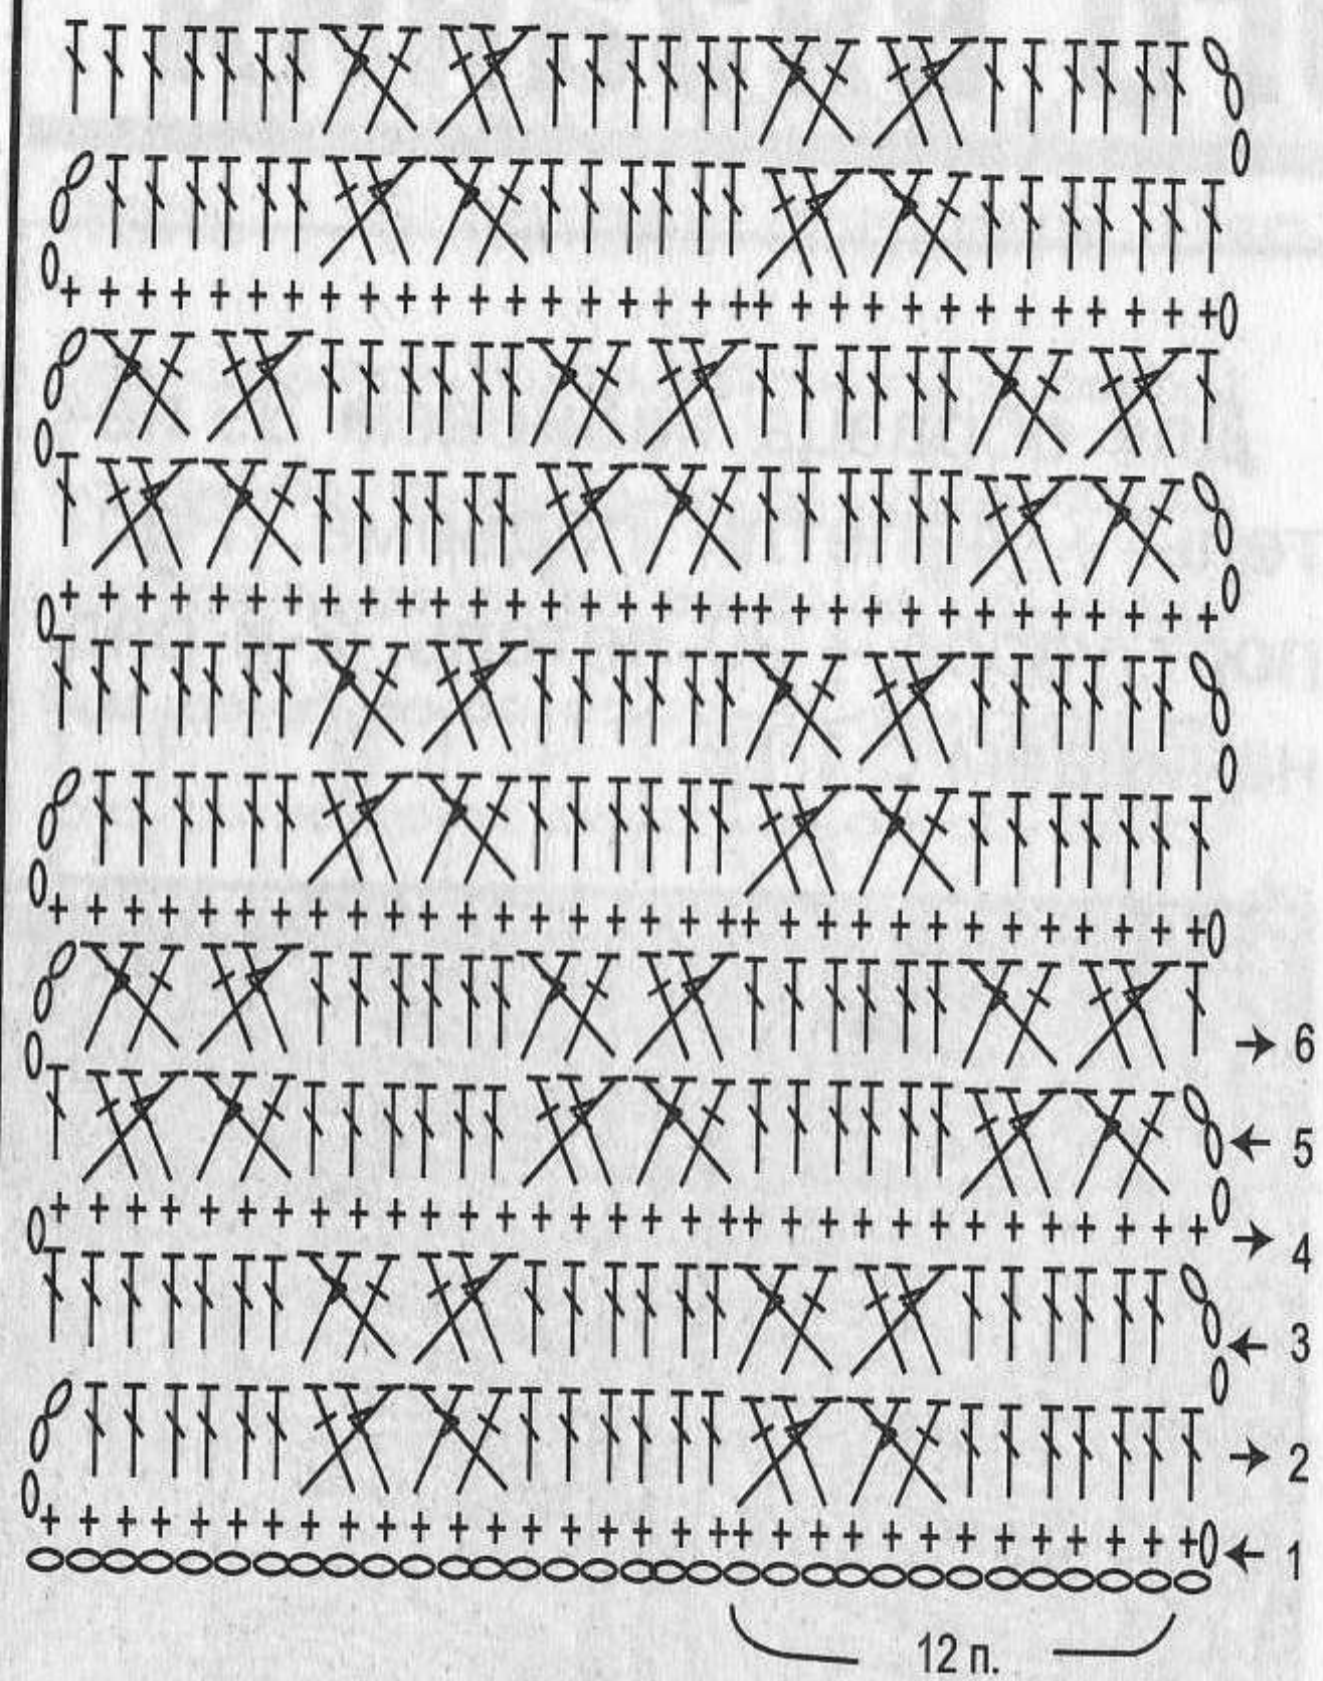 6
5
4
3
2
1
12 п.